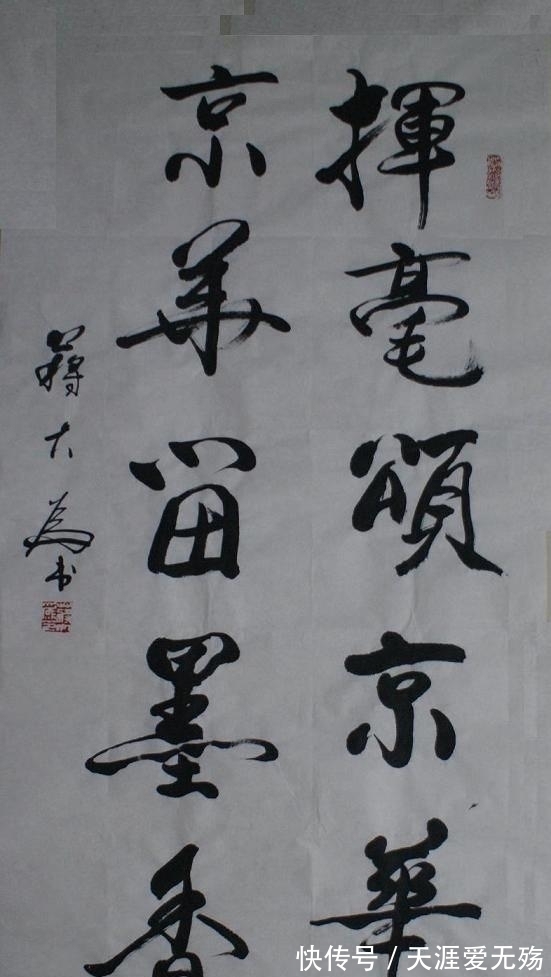 揮毫頌京華
京華留墨香
蔣大為书
快传号/天涯爱无殇